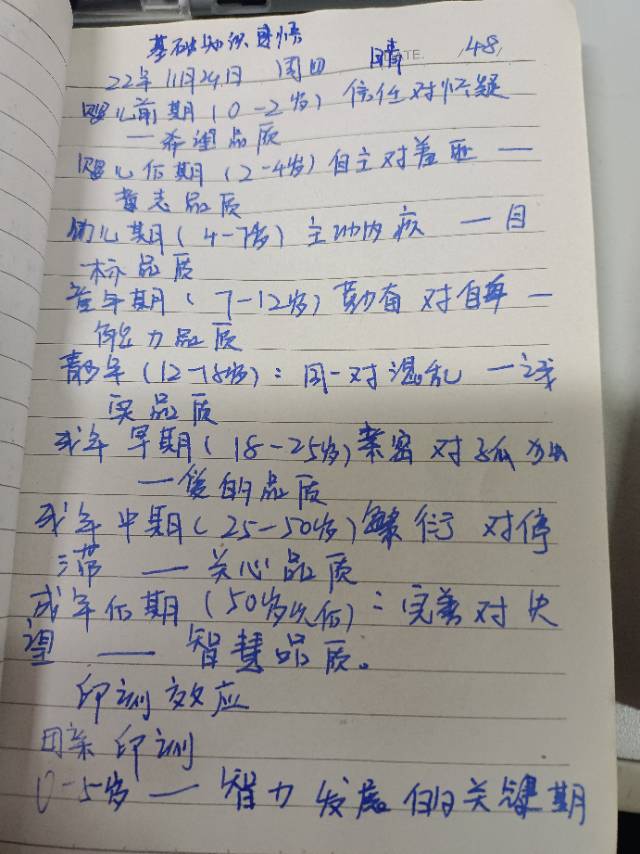 基础知识
22年11月24日 周四 晴 48
婴儿前期(0-2岁) 信任对怀疑
—希望品质
婴儿后期(2-4岁)自主对羞耻—
意志品质
幼儿期(4-7岁)主动内疚—目
标品质
童年期(7-12岁)勤奋对自卑—
能力品质
青少年(12-18岁):同一对混乱—诚
实品质
成年早期(18-25岁)亲密对孤独
—爱的品质
成年中期(25-50岁)繁衍对停
滞—关心品质
成年后期(50岁以后):完善对失
望—智慧品质。
印刻效应
母亲印刻
0-5岁—智力发展的关键期